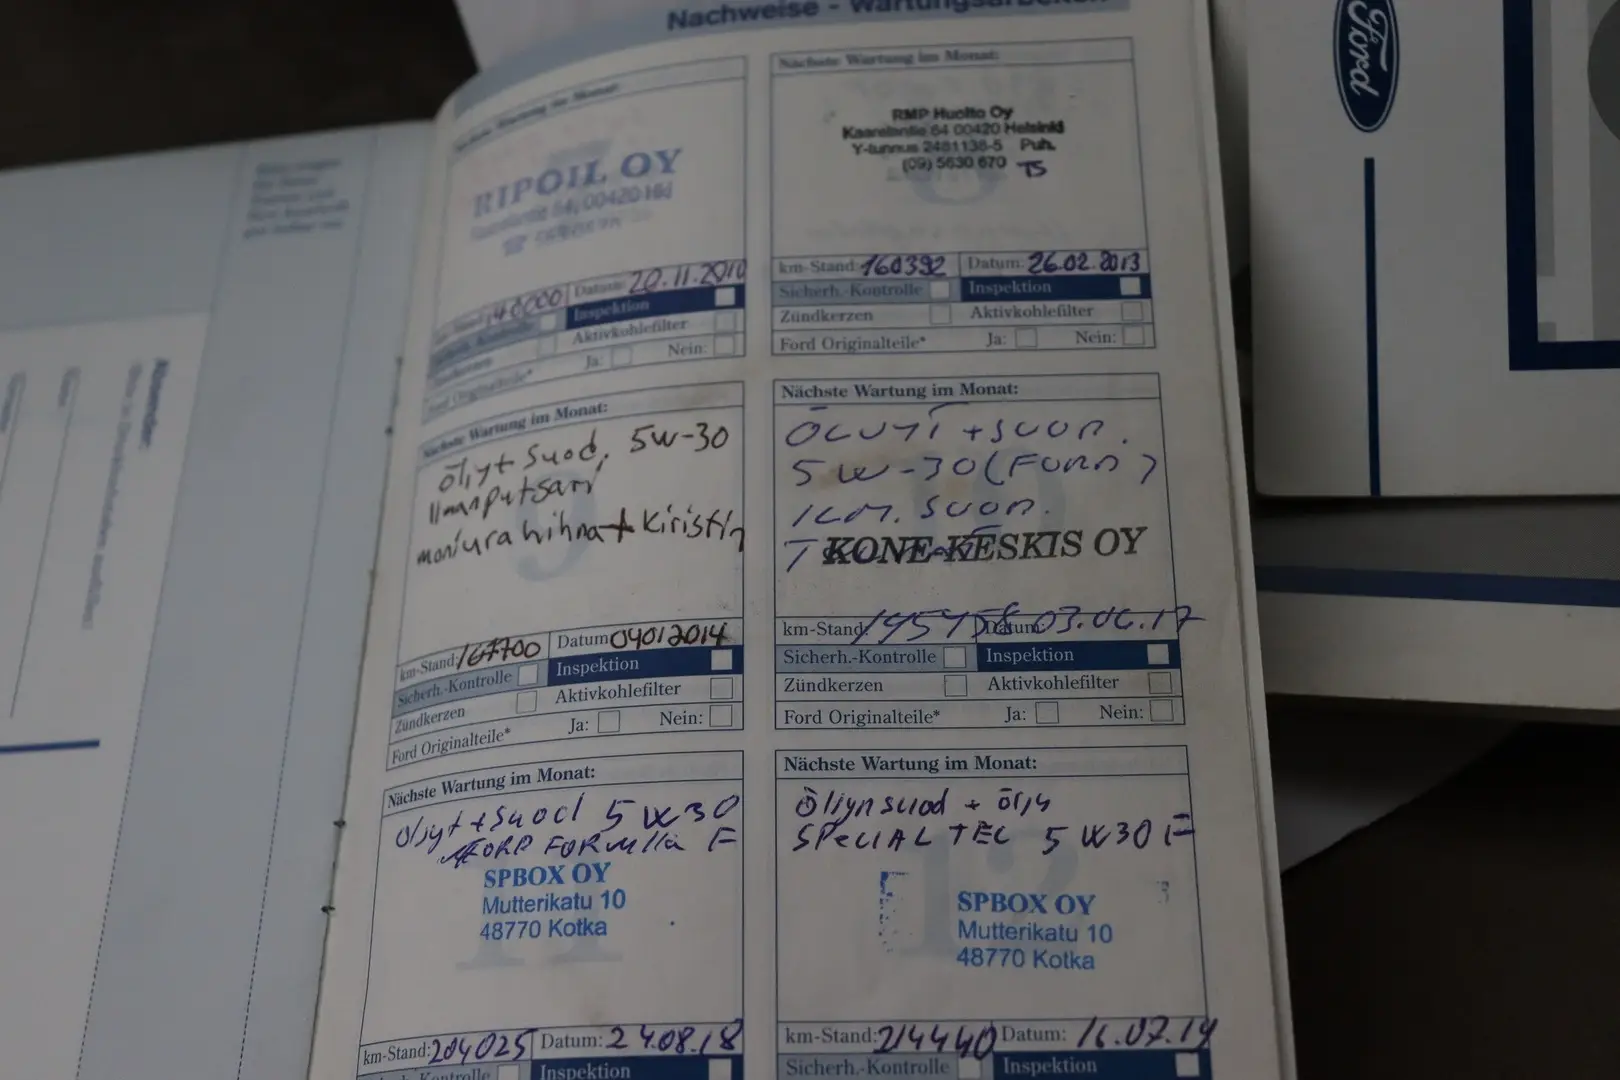 Nachweise - Wartungsarbeiten
Nächste Wartung im Monat:
RIPOIL OY
64, 00420 Hki
140000 Datum: 20.11.2010
Inspektion
Sicherh.-Kontrolle
Aktivkohlefilter
Zündkerzen
Ja: Nein:
Ford Originalteile*
Nächste Wartung im Monat:
RMP Huolto Oy
Kaarelantie 64 00420 Helsinki
Y-tunnus 2481138-5 Puh.
(09) 5630 670 TS
km-Stand: 160392 Datum: 26.02.2013
Sicherh.-Kontrolle Inspektion
Zündkerzen Aktivkohlefilter
Ford Originalteile* Ja: Nein:
Nächste Wartung im Monat:
öljyt suod. 5W-30
Ilmanputsari
moniurahihna + kiristin
km-Stand: 167700 Datum 04012014
Sicherh.-Kontrolle Inspektion
Zündkerzen Aktivkohlefilter
Ford Originalteile* Ja: Nein:
Nächste Wartung im Monat:
ÖLJYT + SUOD.
5W-30 (FORD)
ILM. SUOD.
KONE-KESKIS OY
km-Stand: 195458 Datum: 03.06.17
Sicherh.-Kontrolle Inspektion
Zündkerzen Aktivkohlefilter
Ford Originalteile* Ja: Nein:
Nächste Wartung im Monat:
öljyt + suod 5W30
FORD FORMULA F
SPBOX OY
Mutterikatu 10
48770 Kotka
11
km-Stand: 204025 Datum: 24.08.18
Kontrolle Inspektion
Nächste Wartung im Monat:
Öljynsuod + öljy
SPECIAL TEC 5W30 F
SPBOX OY
Mutterikatu 10
48770 Kotka
12
km-Stand: 214440 Datum: 16.07.19
Sicherh.-Kontrolle Inspektion
Ford